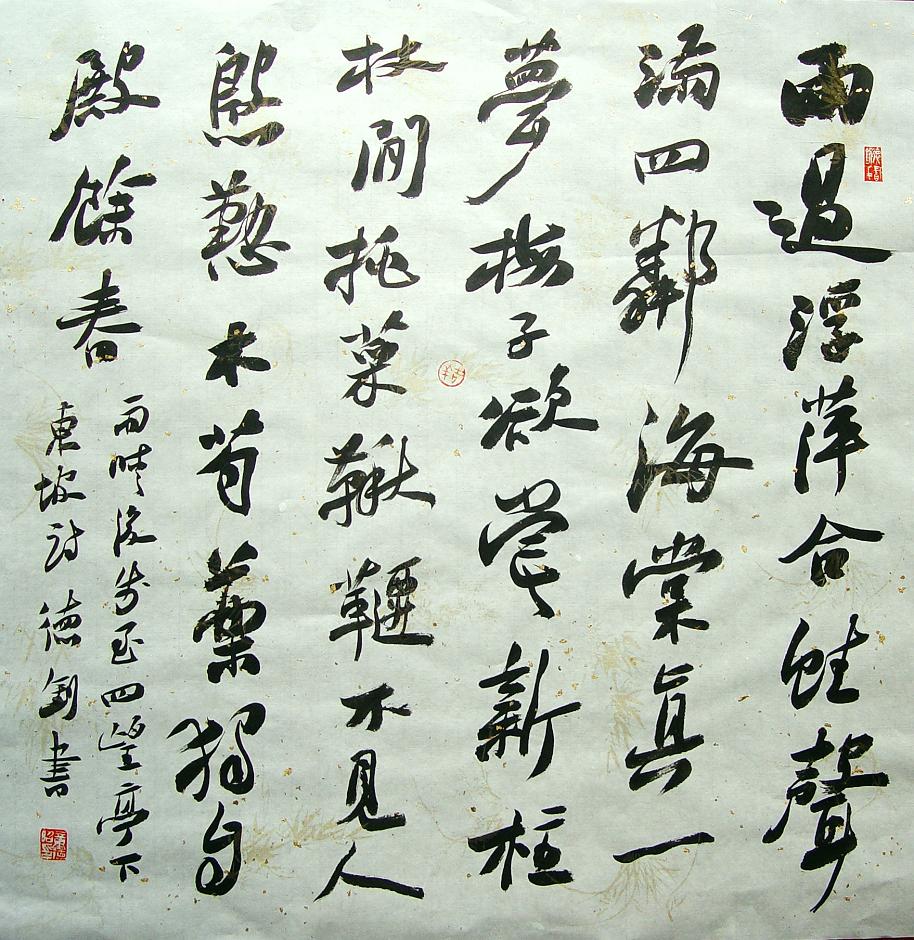 雨過浮萍合蛙聲
滿四鄰海棠真一
夢梅子欲嘗新柱
杖間挑菜鞦韆不見人
慇懃木芍藥獨自
殿餘春
雨晴後步至四望亭下
東坡詩 德釗書